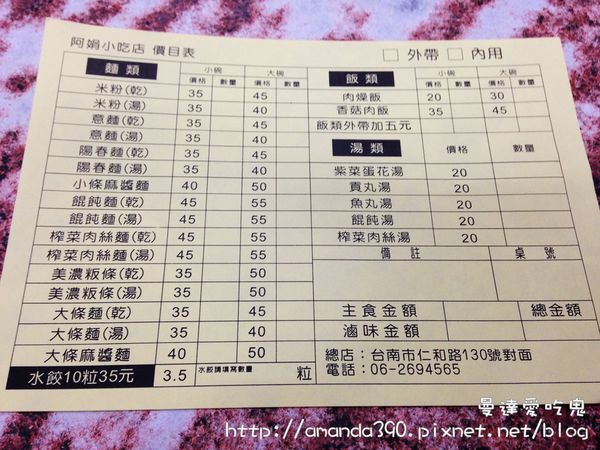 阿娟小吃店 價目表 □ 外帶 □ 內用
麵類 小碗 大碗
價格 數量 價格 數量
米粉(乾) 35 45
米粉(湯) 35 45
意麵(乾) 35 40
意麵(湯) 35 40
陽春麵(乾) 35 45
陽春麵(湯) 35 40
小條麻醬麵 40 50
餛飩麵(乾) 45 55
餛飩麵(湯) 45 55
榨菜肉絲麵(乾) 45 55
榨菜肉絲麵(湯) 45 55
美濃粄條(乾) 35 50
美濃粄條(湯) 35 50
大條麵(乾) 35 45
大條麵(湯) 35 40
大條麻醬麵 40 50
水餃10粒35元 3.5 水餃請填寫數量 粒
飯類 小碗 大碗
價格 數量 價格 數量
肉燥飯 20 30
香菇肉飯 35 45
飯類外帶加五元
湯類 價格 數量
紫菜蛋花湯 20
貢丸湯 20
魚丸湯 20
餛飩湯 20
榨菜肉絲湯 20
備註 桌號
主食金額 總金額
滷味金額
總店：台南市仁和路130號對面
電話：06-2694565
曼達愛吃鬼
http://amanda390.pixnet.net/blog